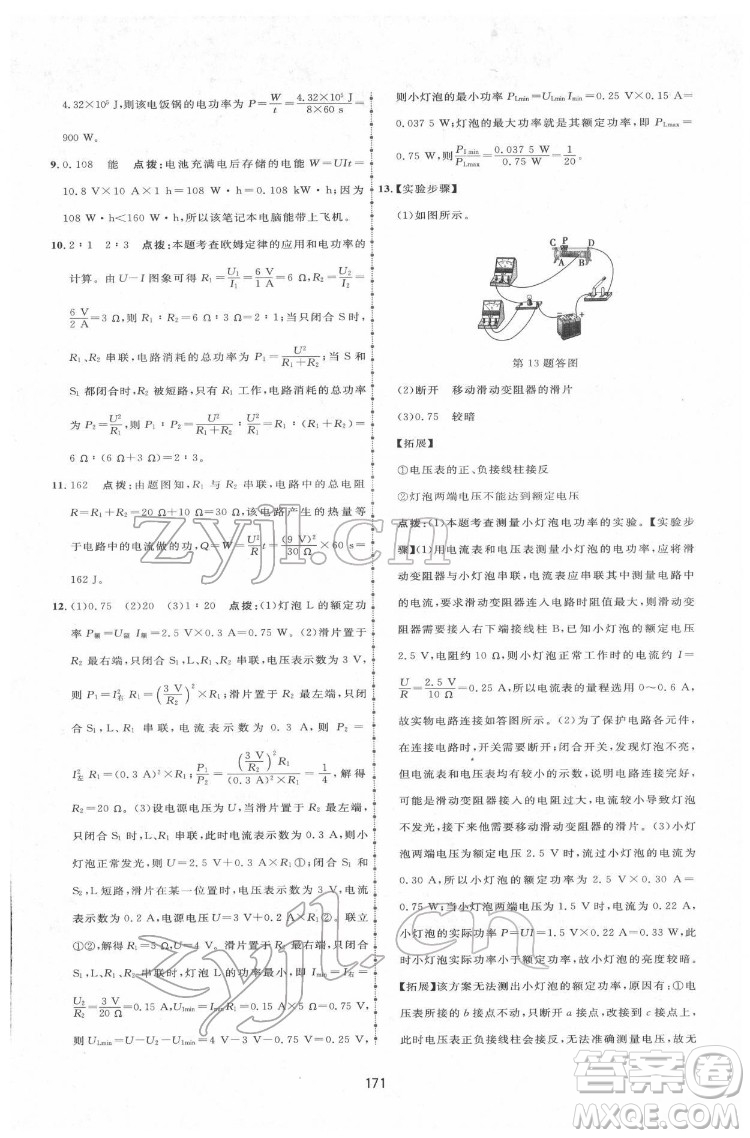 4.32×10⁵ J,则该电饭锅的电功率为 P=W/t=4.32×10⁵ J/(8×60 s)=
900 W.
9.0.108 能 点拨:电池充满电后存储的电能 W=UIt=
10.8 V×10 A×1 h=108 W·h=0.108 kW·h;因为
108 W·h<160 W·h,所以该笔记本电脑能带上飞机.
10.2∶1 2∶3 点拨:本题考查欧姆定律的应用和电功率的
计算。由 U—I 图象可得 R₁=U₁/I₁=6 V/1 A=6 Ω,R₂=U₂/I₂=
6 V/2 A=3 Ω,R₁∶R₂=6 Ω∶3 Ω=2∶1;当只闭合 S 时,
R₁、R₂ 串联,电路消耗的总功率为 P₁=U²/(R₁+R₂);当 S、
S₁ 都闭合时,R₂ 被短路,只有 R₁ 工作,电路消耗的总功率
为 P₂=U²/R₁,则 P₁∶P₂=U²/(R₁+R₂)∶U²/R₁=R₁∶(R₁+R₂)=
6 Ω∶(6 Ω+3 Ω)=2∶3.
11.162 点拨:由题图知,R₁ 与 R₂ 串联,电路中的总电阻
R=R₁+R₂=20 Ω+10 Ω=30 Ω,该电路产生的热量等
于电路中的电流做的功,Q=W=U²/R t=(9 V)²/30 Ω×60 s=
162 J.
12.(1)0.75 (2)20 (3)1∶20 点拨:(1)灯泡 L 的额定功
率 P额=U额I额=2.5 V×0.3 A=0.75 W.(2)滑片置于
R₂ 最右端,只闭合开关 S₁、S₂ 时,电压表示数为 3 V,
则 P₁=I右²R₁=(3 V/R₂)²×R₁;滑片置于 R₂ 最左端,只闭
合 S₁,L、R₁ 串联,电流表示数为 0.3 A,则 P₂=
I左²R₁=(0.3 A)²×R₁;P₁/P₂=(3 V/R₂)²×R₁/((0.3 A)²×R₁)=1/4,解得
R₂=20 Ω.(3)设电源电压为 U,当滑片置于 R₂ 最左端,
只闭合 S₁ 时,L、R₁ 串联,此时电流表示数为 0.3 A,则小
灯泡正常发光,则 U=2.5 V+0.3 A×R₁①;只闭合 S₁、
S₂,L 短路,滑片在某一位置时,电压表示数为 3 V,电流
表示数为 0.2 A,则电源电压 U=3 V+0.2 A×R₁②.联立
①②,解得 R₁=5 Ω,U=4 V.滑片置于 R₂ 最右端,只闭
合 S₂,R₂、L 串联,灯泡 L 的功率最小,即 Imin=I右=
U₂/R₂=3 V/20 Ω=0.15 A,ULmin=U−U₂=4 V−3 V=1 V,
则小灯泡的最小功率 PLmin=ULminImin=0.25 V×0.15 A=
0.037 5 W;灯泡的最大功率为其额定功率,即 PLmax=
0.75 W,PLmin/PLmax=0.037 5 W/0.75 W=1/20.
13.【实验步骤】
(1)如图所示。
C P D
A B
− +
第13题答图
(2)断开 移动滑动变阻器的滑片
(3)0.75 较暗
【拓展】
①电压表的正、负接线柱接反
②灯泡两端电压不能达到额定电压
点拨:(1)本题考查测量小灯泡电功率的实验。【实验步
骤】(1)用电流表和电压表测量小灯泡的电功率,应将滑
动变阻器与小灯泡串联,电流表应串联测量电路中
的电流,要求滑动变阻器闭合电路时阻值最大,则滑
动变阻器接右下端接线柱 B,已知小灯泡的额定电压
2.5 V,电阻约 10 Ω,则小灯泡正常工作时的电流约 I=
U/R=2.5 V/10 Ω=0.25 A,所以电流表的量程选用 0~0.6 A,
故实物电路连接如答图所示。(2)为了保护电路各元件,
在连接电路时,开关需要断开;闭合开关后,发现灯泡不亮,
但电流表和电压表均有较小的示数,说明电路连接完好,可
能是滑动变阻器接入的电阻过大,电流较小导致灯泡
不发光,此时应进行的操作是移动滑动变阻器的滑片。(3)小灯
泡两端电压为额定电压 2.5 V时,通过小灯泡的电流为
0.30 A,则小灯泡的额定功率 P=UI=2.5 V×0.30 A=
0.75 W;当小灯泡两端电压为 1.5 V 时,电流为 0.22 A,
小灯泡的实际功率 P=UI=1.5 V×0.22 A=0.33 W,
此时小灯泡实际功率小于额定功率,故小灯泡的亮度较暗。
【拓展】该方案无法测出小灯泡的额定功率,原因有:①电
压表所接的 b 接点不动,只断开 a 接点,改接到 c 接点上,
此时电压表正负接线柱会接反,无法正确测量电压,故无
171
zyjl.cn
zyjl.cn
答案卷
MXQE.COM